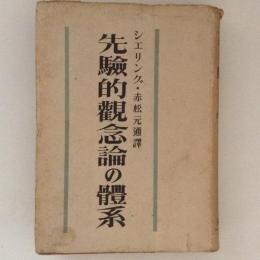 シエリング・赤松元通譯
先驗的觀念論の體系